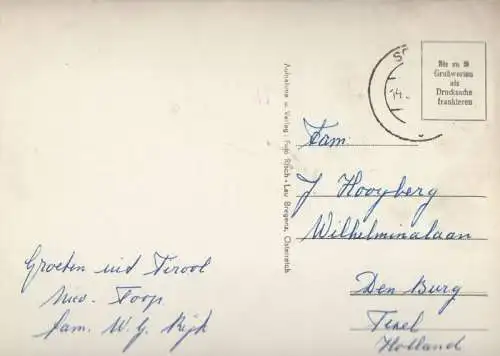 Groeten uid Tirool
Nico. Toop.
fam. W. G. Rijk
Aufnahme u. Verlag: Foto Risch-Lau Bregenz, Österreich
14.
Bis zu 5
Grußworten
als
Drucksache
frankieren
Fam.
J. Hooyberg
Wilhelminalaan
Den Burg
Texel
Holland